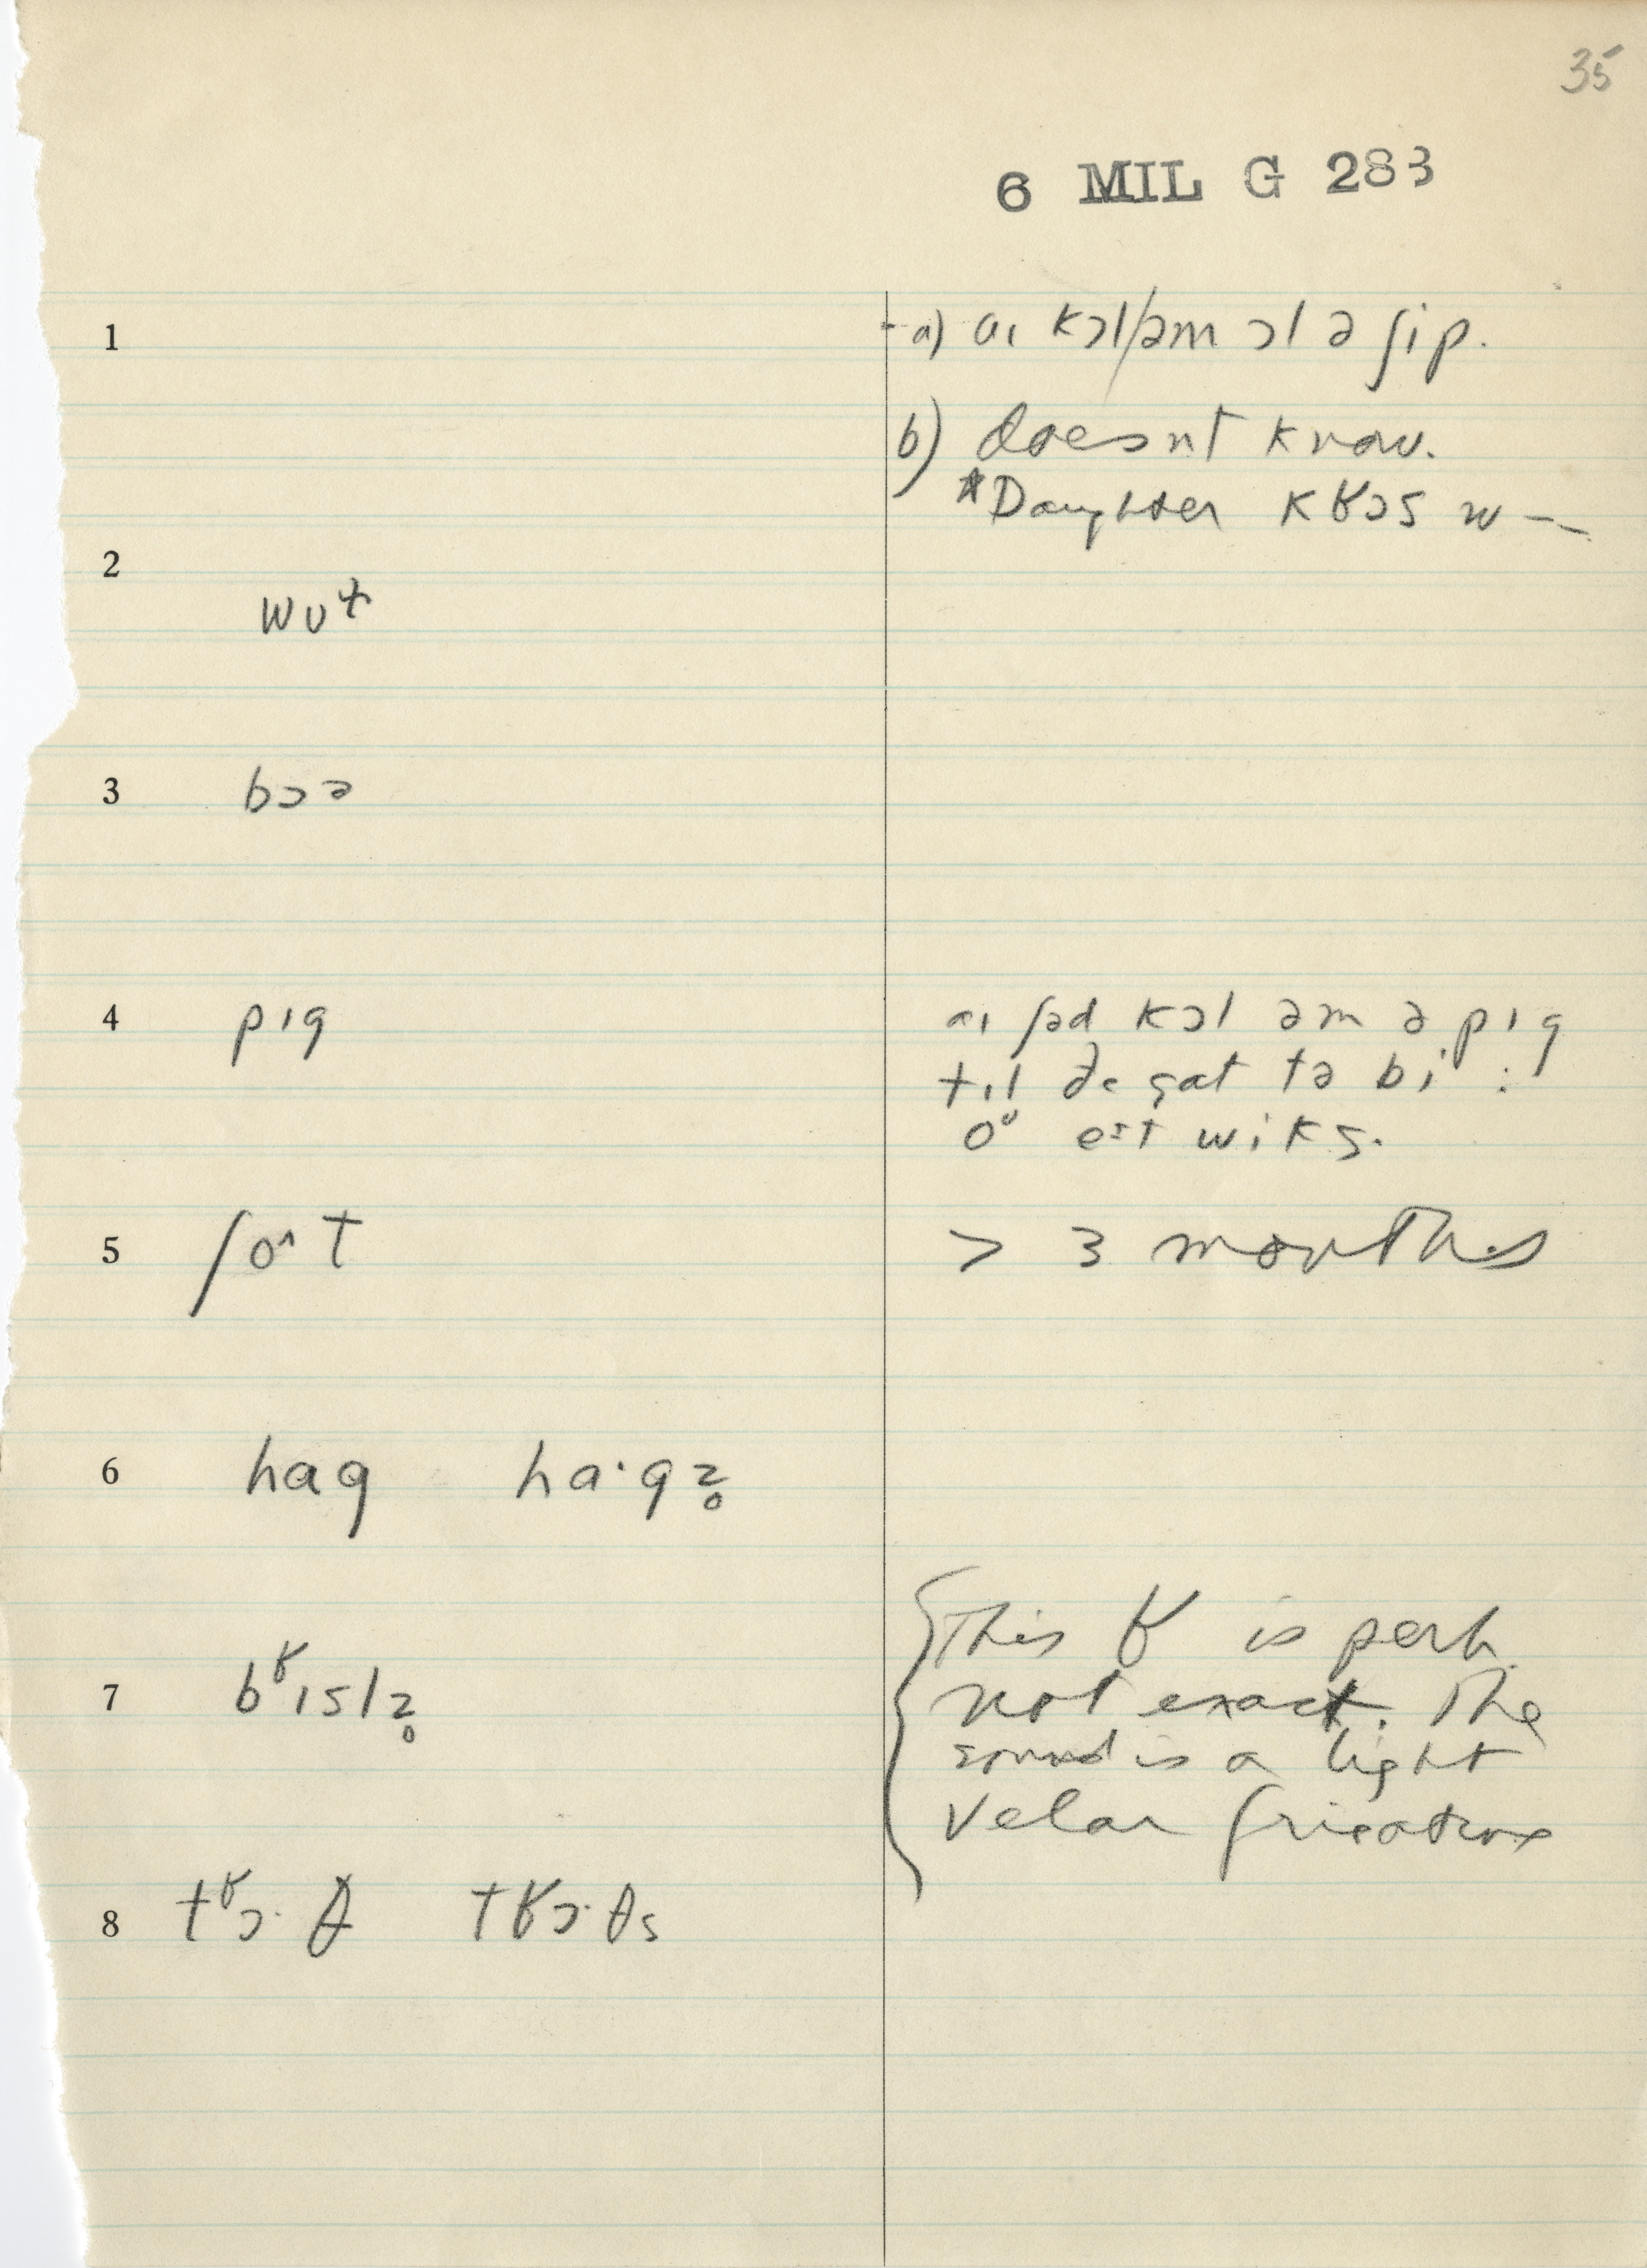 35
6 MIL G 283
1
a) aɪ kɔl/əm ɔl ə ʃip.
b) doesnt know.
*Daughter kʁɔs w—
2
wʊt
3
bɔə
4 pɪg
aɪ ʃəd kɔl əm ə pɪg
tɪl ðe gat tə bi :
oᶷ eɪt wiks.
5 ʃoʌt
> 3 months
6 hag ha·gz̥
7 bʁɪslz̥
{This ʁ is perh.
not exact. The
sound is a light
velar fricative
8 tʁɔ·θ tʁɔ·θs